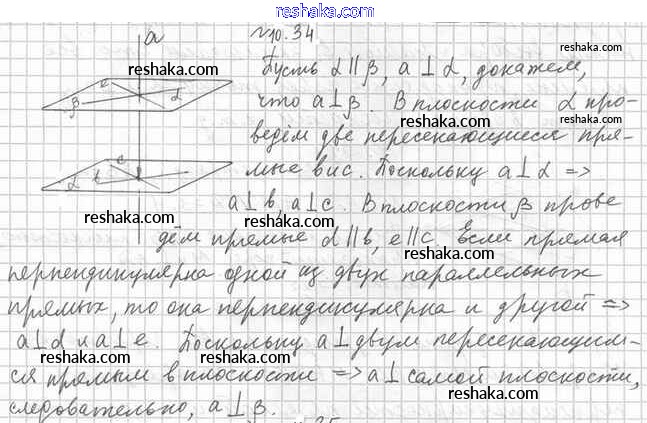 reshaka.com
№10.34
Пусть α ∥ β, a ⊥ α, докажем,
что a ⊥ β. В плоскости α про-
ведём две пересекающиеся пря-
мые b и c. Поскольку a ⊥ α =>
a ⊥ b, a ⊥ c. В плоскости β прове
дём прямые d ∥ b, e ∥ c. Если прямая
перпендикулярна одной из двух параллельных
прямых, то она перпендикулярна и другой =>
a ⊥ d и a ⊥ e. Поскольку a ⊥ двум пересекающим-
ся прямым в плоскости => a ⊥ самой плоскости,
следовательно, a ⊥ β.
a
e
β
d
c
α
b
reshaka.com
reshaka.com
reshaka.com
reshaka.com
reshaka.com
reshaka.com
reshaka.com
reshaka.com
reshaka.com
reshaka.com
reshaka.com